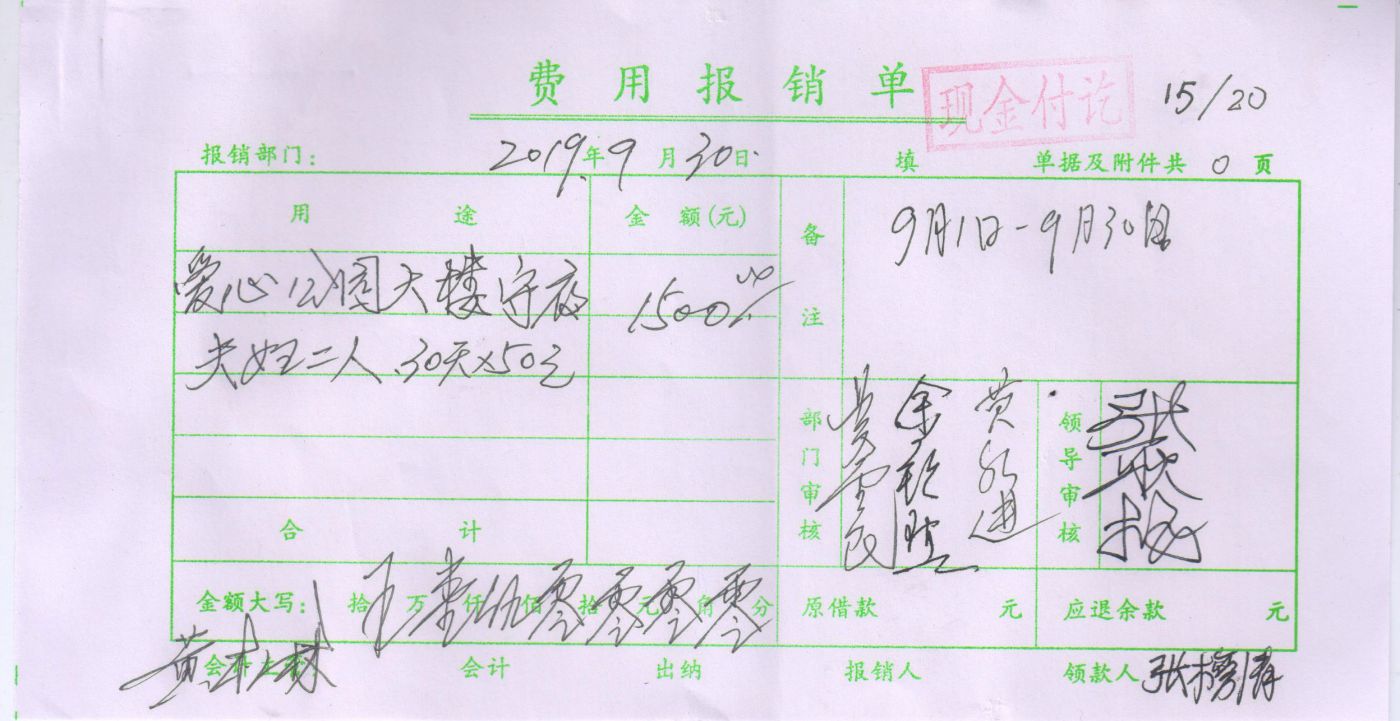 费用报销单
现金付讫
15/20
报销部门： 2019年9月30日 填 单据及附件共 0 页
用途 金额(元) 备注
9月1日-9月30日
爱心公园大楼守夜 1500.00
夫妇二人 30天×50元
部门审核 领导审核
合计
金额大写： 拾 万 壹 仟 伍 佰 零 拾 零 元 零 角 零 分 原借款 元 应退余款 元
会计主管 会计 出纳 报销人 领款人